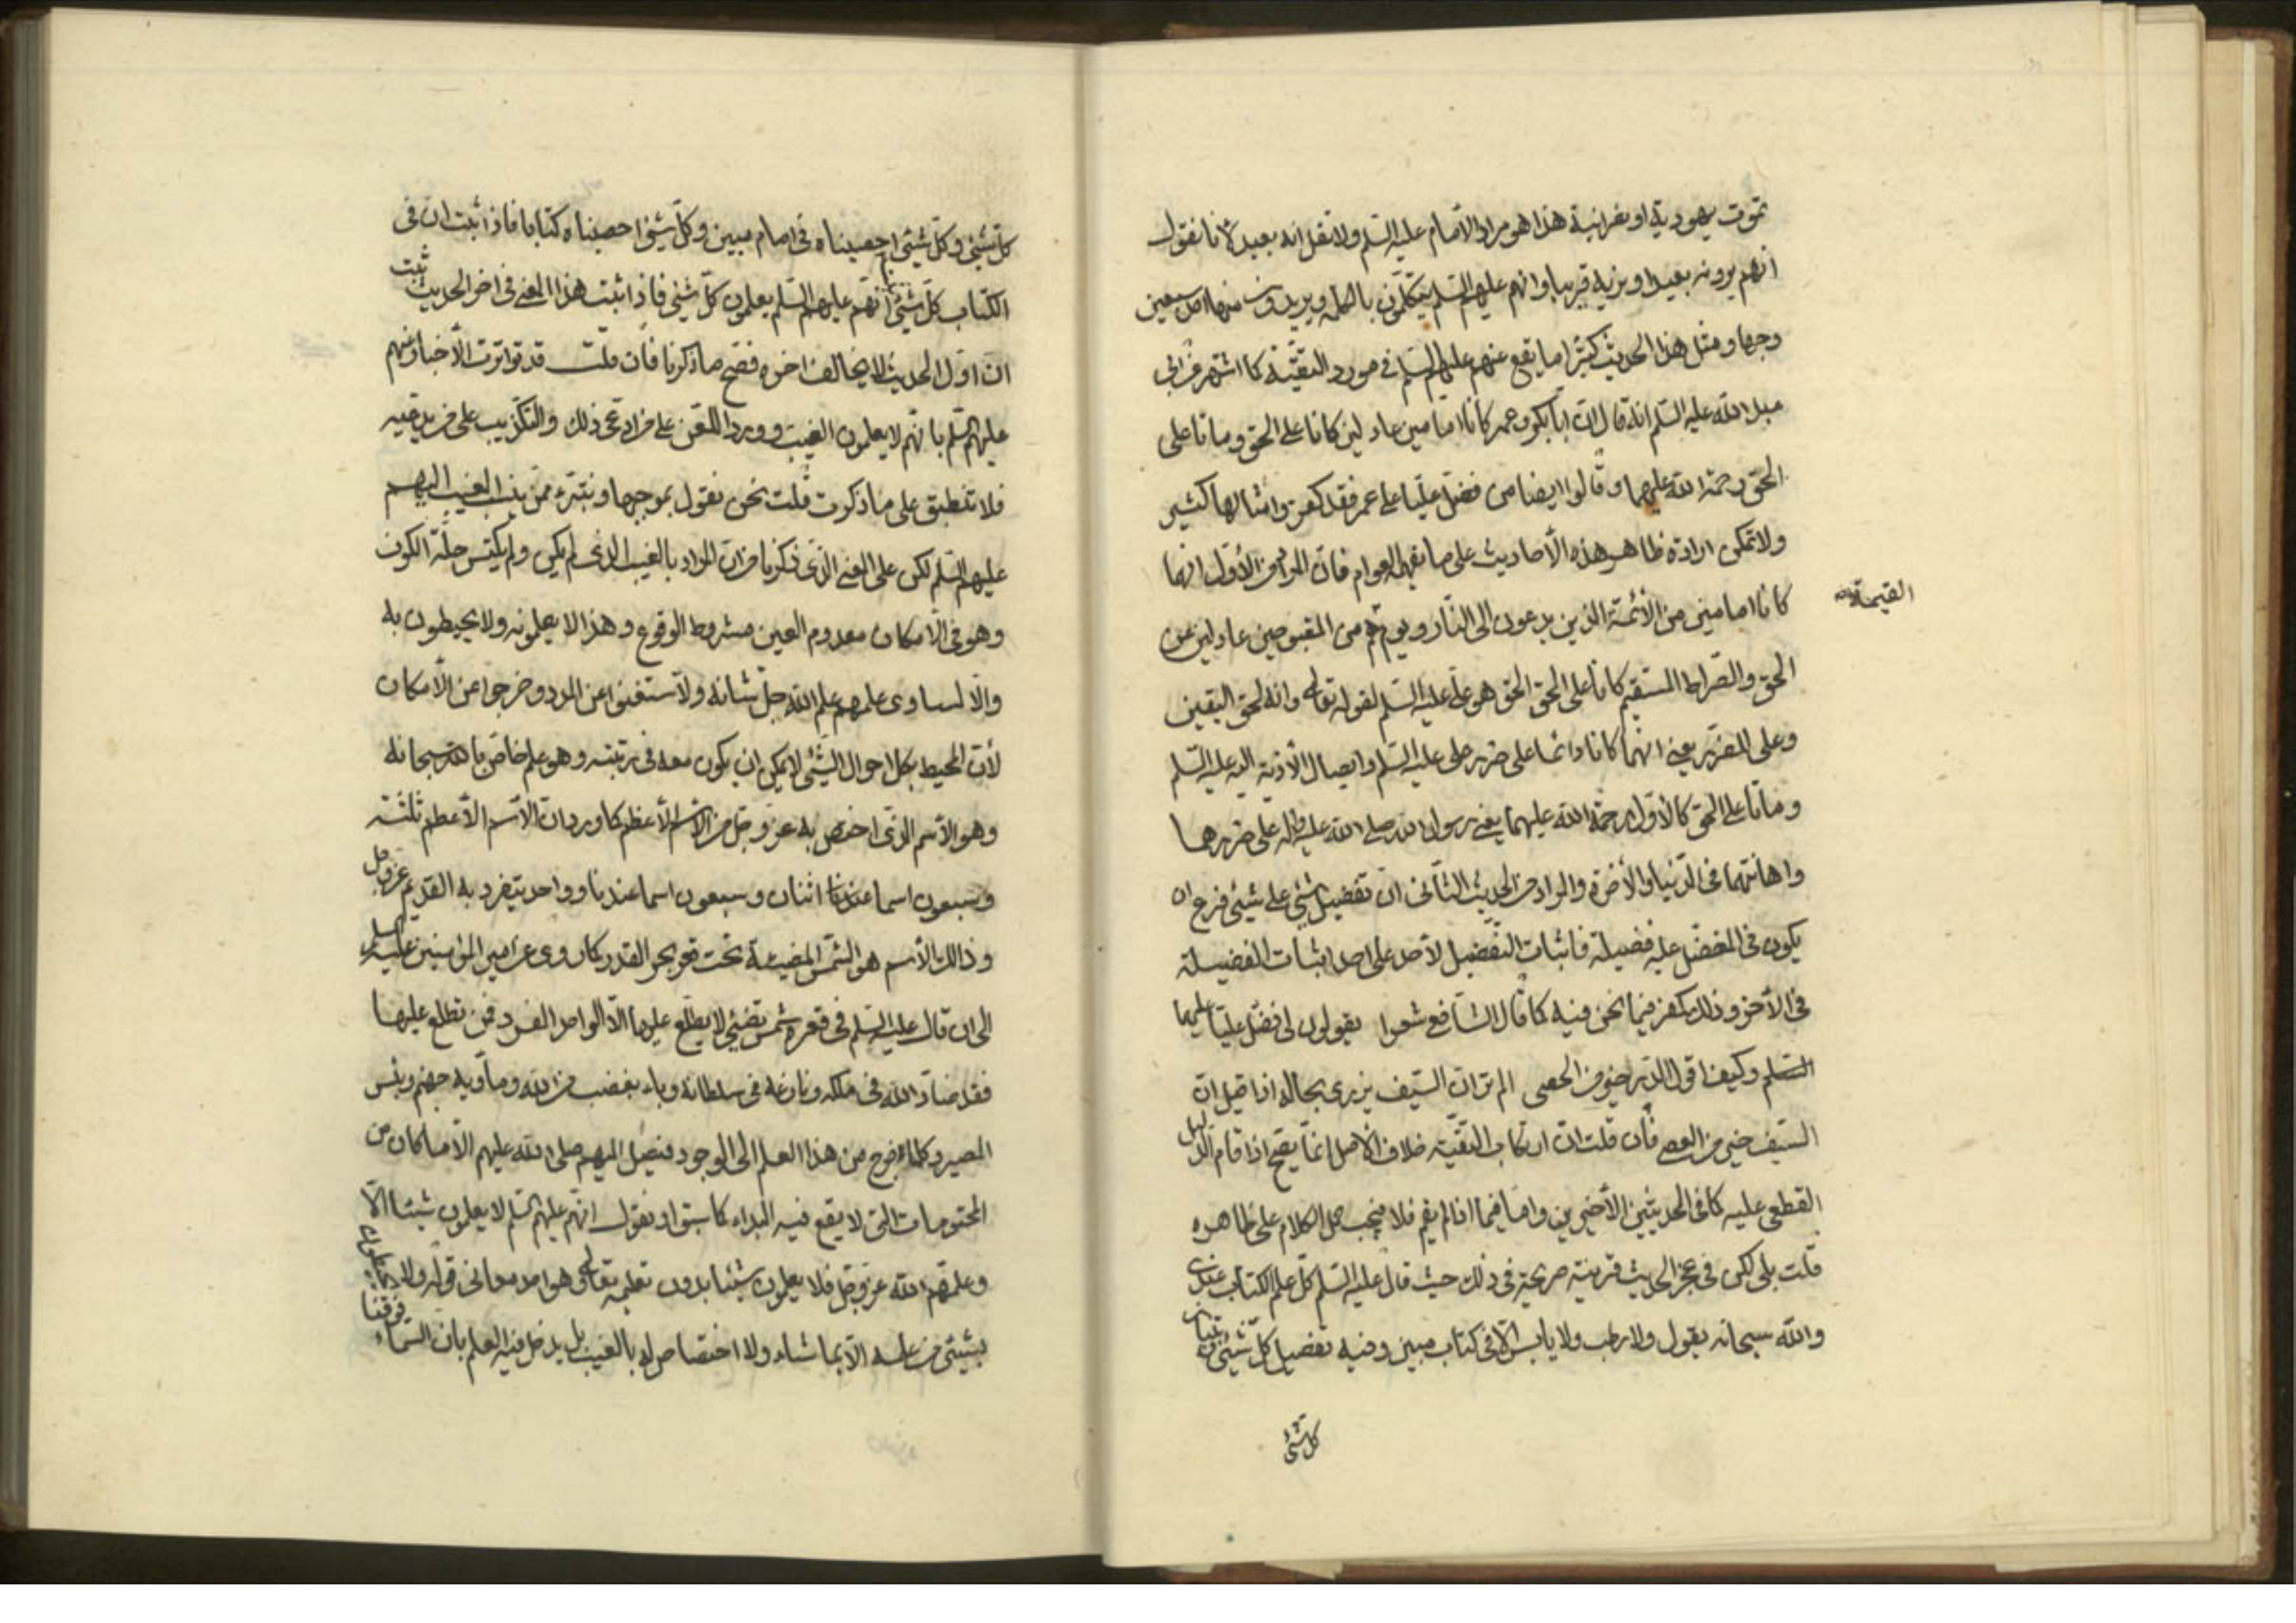 تموت يهودية او نصرانية هذا هو مراد الامام عليه السلم ولا تقل انه بعيد لانا نقول
انهم يرونه بعيدا ونريه قريبا وانهم عليهم السلم يتكلمون بالكلمة ويريدون منها احد سبعين
وجها ومثل هذا الحديث كثيرا ما يقع عنهم عليهم السلم في مورد التقيّة كما اشتهر عن ابي
عبد الله عليه السلم انه قال انّ ابا بكر وعمر كانا امامين عادلين كانا على الحق وماتا على
الحق رحمة الله عليهما وقالوا ايضا من فضّل عليّا على عمر فقد كفر وامثالها كثير
ولا تمكن ارادة ظاهر هذه الأحاديث على ما يفهمه العوام فانّ المراد من الأوّل انهما
كانا امامين من الأئمّة الذين يدعون الى النّار ويوم هم من المقبوحين عادلين عن
القيمة
الحق والصّراط المستقيم كانا على الحق الحق هو علي عليه السلم لقوله تعالى وانه لحق اليقين
وعلى المضرّ يعني انهما كانا دائما على ضرر علي عليه السلم وايصال الأذية اليه عليه السلم
وماتا على الحق كالأول رحمة الله عليهما يعني رسول الله صلى الله عليه وآله على ضررهما
واهانتهما في الدّنيا والأخرة والمراد من الحديث الثاني انّ تفضيل شيئ على شيئ فرع ان
يكون في المفضّل عليه فضيلة فاثبات التفضيل لأحد على احد اثبات الفضيلة
في الأخر وذلك كفر فيما نحن فيه كما قال الشافع شعرا يقولون لي فضّل عليّا عليهما
السلم وكيف اقول الدر خير من الحصى الم تر ان السّيف يزري بحاله اذا قيل انّ
السّيف خير من العصي فان قلت انّ ارتكاب التقيّة خلاف الأصل انما يصح اذا قام الدليل
القطعي عليه كما في الحديثين الأخيرين وامّا فيما اذا لم يقم فلا فيجب حمل الكلام على ظاهره
قلت بلى لكن في عجز الحديث قرينة صريحة في ذلك حيث قال عليه السلم كل علم الكتاب عندي
والله سبحانه يقول ولا رطب ولا يابس الّا في كتاب مبين وفيه تفصيل كل شيئ تبيان
كل شيئ
كل شيئ وكل شيئ احصيناه في امام مبين وكل شيئ احصيناه كتابا فاذا ثبت ان في
الكتاب كل شيئ انّهم عليهم السلم يعلمون كل شيئ فاذا ثبت هذا المعنى في اخر الحديث ثبت
ان اول الحديث لا يخالف اخره فصح ما ذكرنا فان قلت قد تواترت الأخبار عنهم
عليهم السلم بانهم لا يعلمون الغيب وورد اللعن على من ادعى ذلك والتكذيب على من يدعيه
فلا تنطبق على ما ذكرت قلت نحن نقول بموجبها ونتبرء ممن ينسب الغيب اليهم
عليهم السلم لكن على المعنى الذي ذكرنا من ان المراد بالغيب الذي لم يكن ولم يكتس حلّة الكون
وهو في الأمكان معدوم العين مشروط الوقوع وهذا لا يعلمونه ولا يحيطون به
والّا لساوى علمهم علم الله جل شانه ولاستغنوا عن المدد وخرجوا عن الأمكان
لأن المحيط بكل احوال الشيئ لا يمكن ان يكون معه في رتبته وهو علم خاص بالله سبحانه
وهو الأسم الذي اختص به عز وجل من الأسم الأعظم كما ورد ان الأسم الأعظم ثلثة
وسبعون اسما عندنا اثنان وسبعون اسما عندنا وواحد يتفرد به القديم عز وجل
وذالك الأسم هو الشمس المضيئة تحت قعر بحر القدر كما روى عن امير المؤمنين عليه السلم
الى ان قال عليه السلم في قعره شمس تضيئ لا يطلع عليها الا الواحد الفرد فمن تطلع عليها
فقد ضادّ الله في ملكه ونازعه في سلطانه وباء بغضب من الله ومأويه جهنم وبئس
المصير وكلما خرج من هذا العلم الى الوجود فيصل اليهم صلى الله عليهم الا ما كان من
المحتومات التي لا يقع فيه البداء كما سبق او نقول انّهم عليهم السلم لا يعلمون شيئا الّا
وعلمهم الله عز وجل فلا يعلمون شيئا بدون تعليمه تعالى وهو احد معاني قوله ولا يحيطون
بشيئ من علمه الّا بما شاء ولا اختصاص له بالغيب بل يدخل فيه العلم بان السماء فوقنا